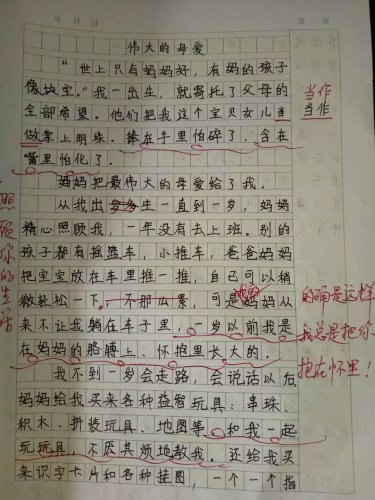 年 月 日
第 页
伟大的母爱
“世上只有妈妈好，有妈的孩子
像块宝。”我一出生，就寄托了父母的
全部希望。他们把我这个宝贝女儿当
当作
当作
做掌上明珠。捧在手里怕碎了，含在
嘴里怕化了。
妈妈把最伟大的母爱给了我。
从我出生一直到一岁，妈妈
精心照顾我，一年没有去上班。别的
照顾你的生活
孩子都有摇篮车，小推车，爸爸妈妈
把宝宝放在车里推一推，自己可以稍
微轻松一下，不那么累，可是妈妈从
我的
来不让我躺在车子里，一岁以前我是
在妈妈的胳膊上、怀抱里长大的。
的确是这样
我总是把你
抱在怀里！
我不到一岁会走路，会说话以后
妈妈给我买来各种益智玩具：串珠、
积木、拼装玩具、地图等，和我一起
玩玩具，不厌其烦地教我。还给我买
来识字卡片和各种挂图，一个一个指